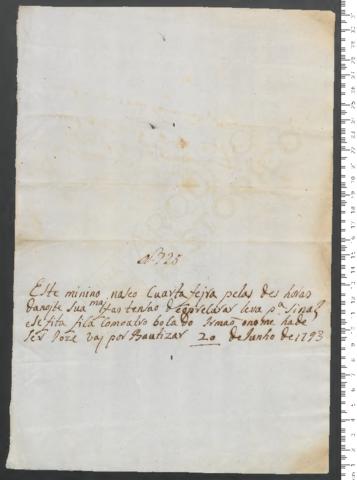 Nº 325
Este minino naseo Cuarta feira pelas des horas
danoite Sua mai fas tensão de
leva pª Sinal
esta fita fica Comoutro
do Irmao onome hade
Ser Joze vaj por Bautizar 20 de Junho de 1793